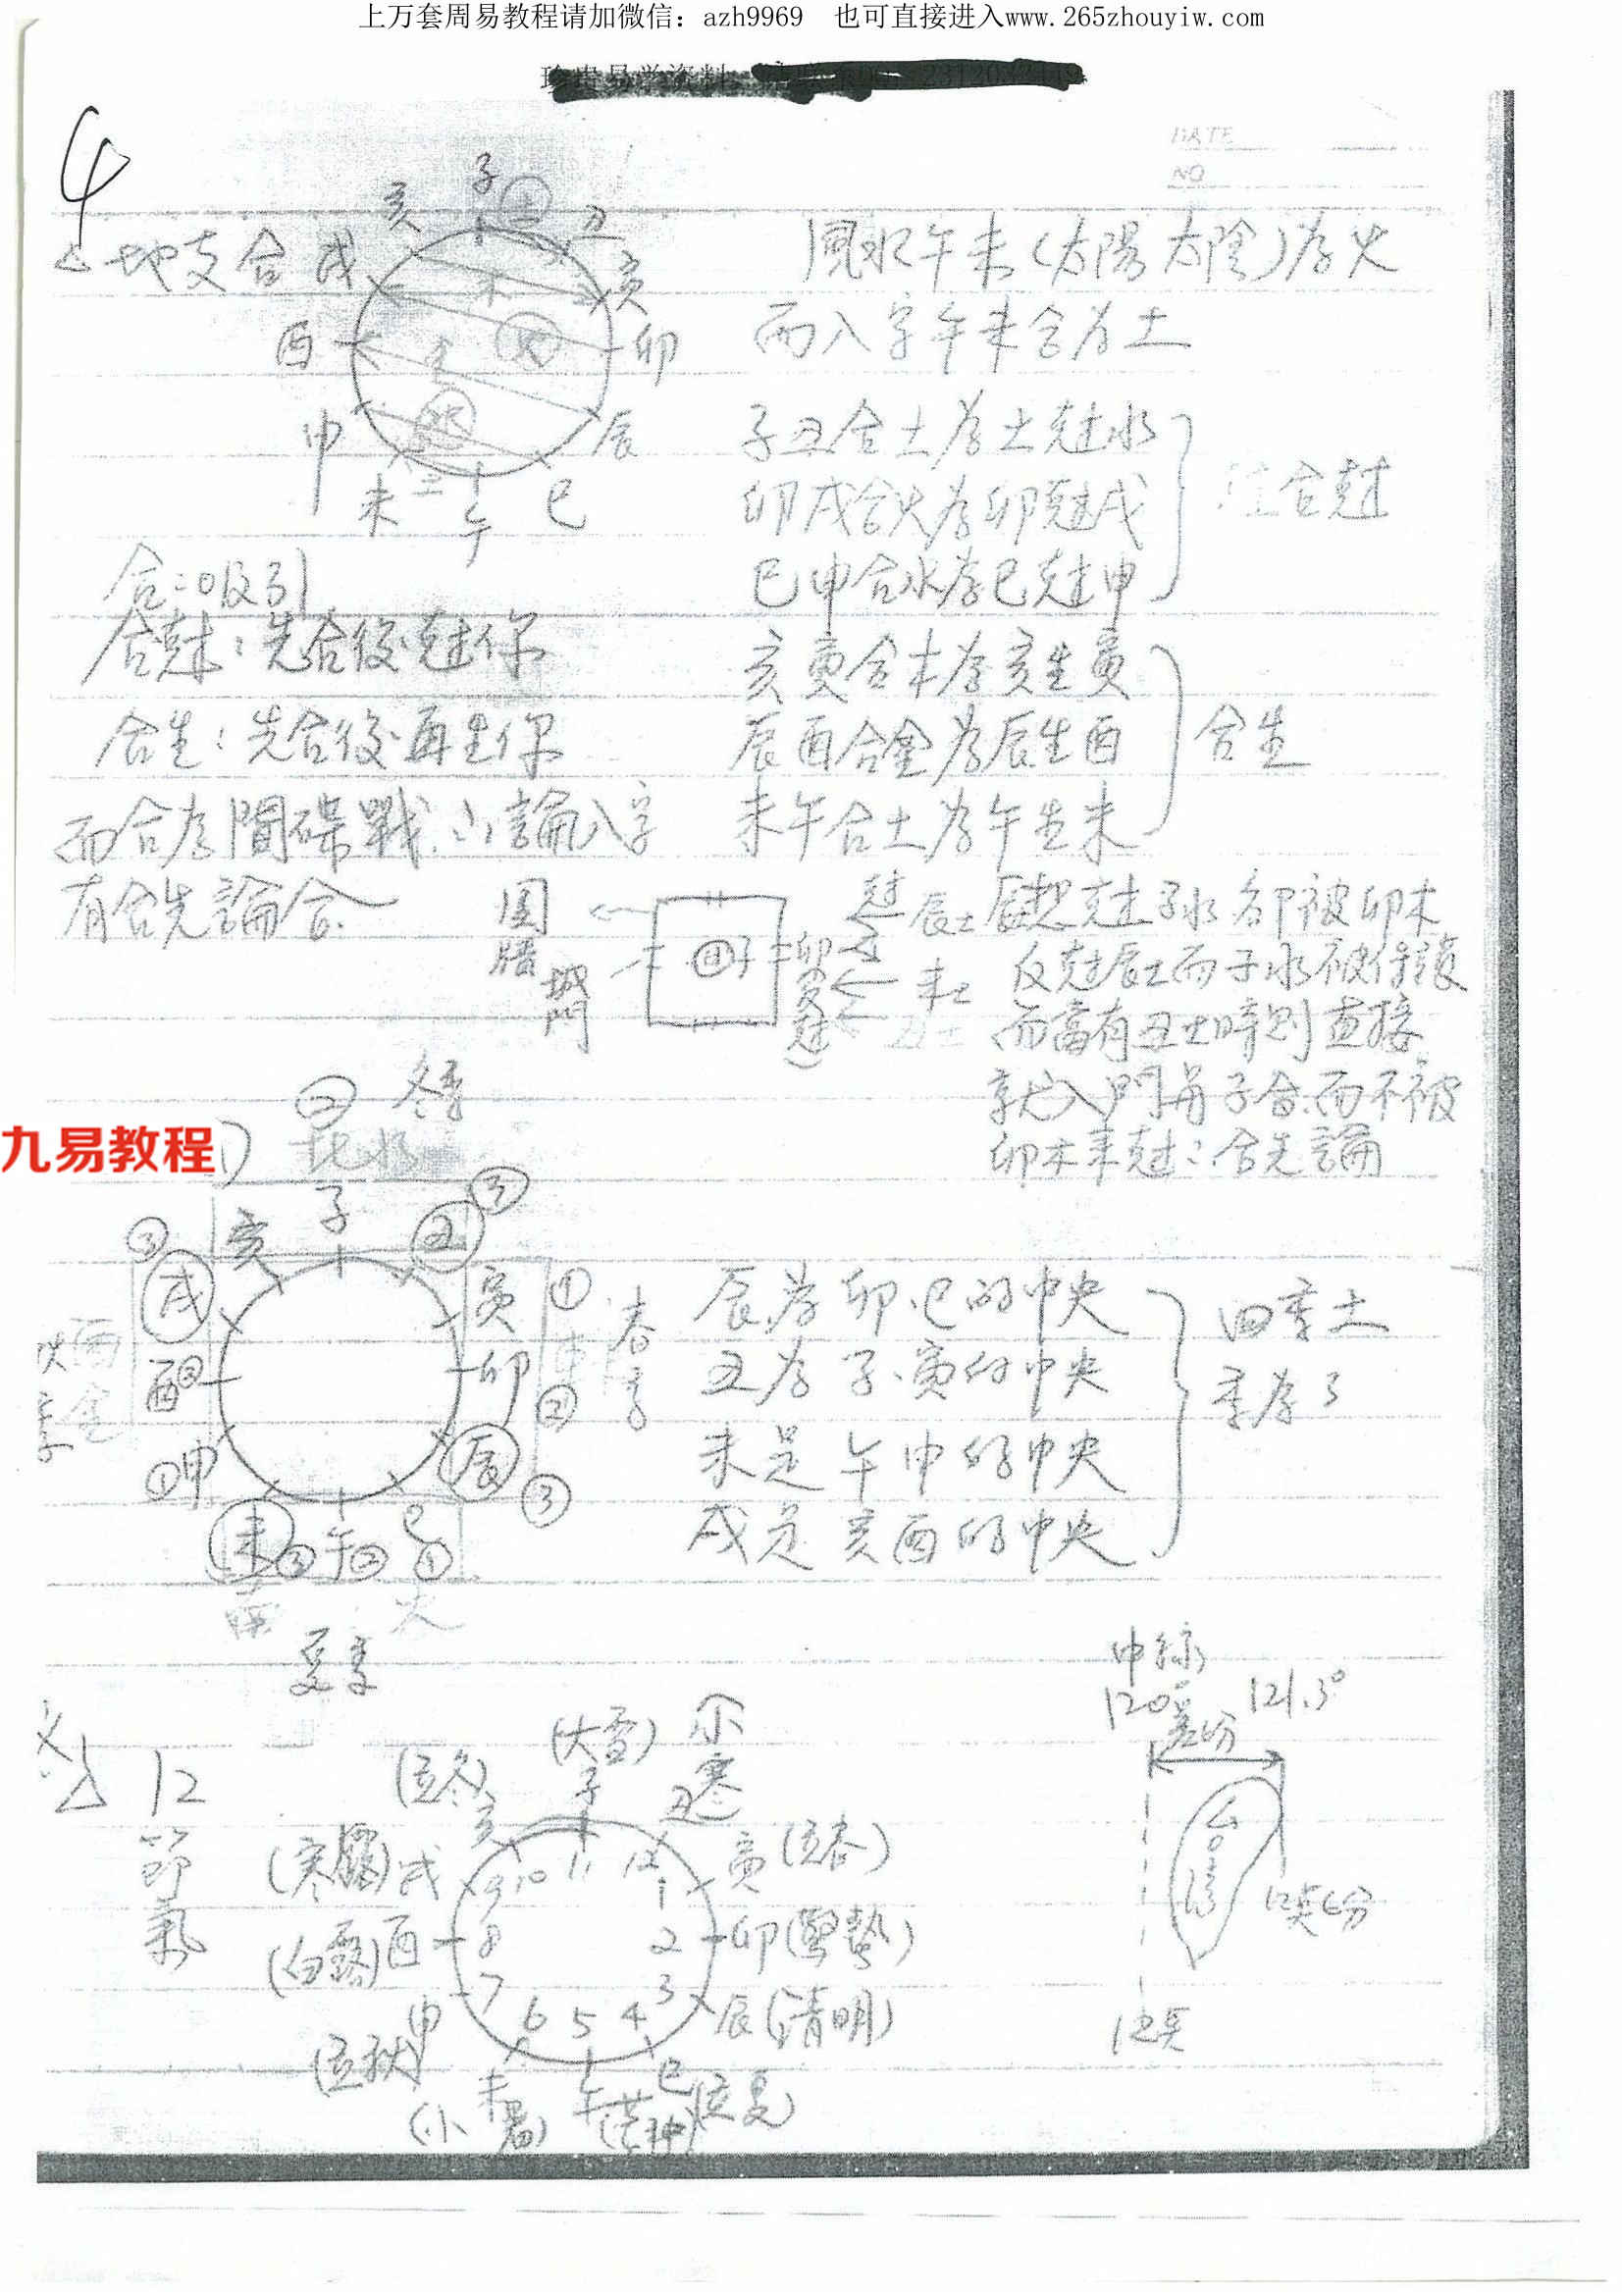 上万套周易教程请加微信：azh9969　也可直接进入www.265zhouyiw.com
珍贵易学资料
DATE
NO
4
△地支合
子
丑
寅
卯
辰
巳
午
未
申
酉
戌
亥
風水午未(太陽太陰)為火
而八字午未合為土
子丑合土為土尅水
卯戌合火為卯尅戌
巳申合水為巳尅申
合尅
亥寅合木為亥生寅
辰酉合金為辰生酉
未午合土為午生未
合生
合:吸引
合尅:先合後尅你
合生:先合後再生你
而合為間碟戰∴論八字
有合先論合
圍牆
城門
子
卯
尅
辰土
未土
丑土
辰想尅子水卻被卯木
反尅辰土而子水被保護
而當有丑土時則直接
就入門與子合而不被
卯木來尅∴合先論
冬季
九易教程
子
丑③
寅①
卯②
辰③
春季
巳①
午②
未③
夏季
申①
酉②
戌③
亥
西金
秋季
南火
辰為卯.巳的中央
丑為子.寅的中央
未是午申的中央
戌是亥酉的中央
四季土
季為3
△12節氣
(大雪)子
(小寒)丑
寅(立春)
卯(驚蟄)
辰(清明)
巳(立夏)
午(芒种)
未(小暑)
申(立秋)
(白露)酉
(寒露)戌
(立冬)亥
11 12 1 2 3 4 5 6 7 8 9 10
中線
120°
差6分
121.3°
台灣
12點6分
12點